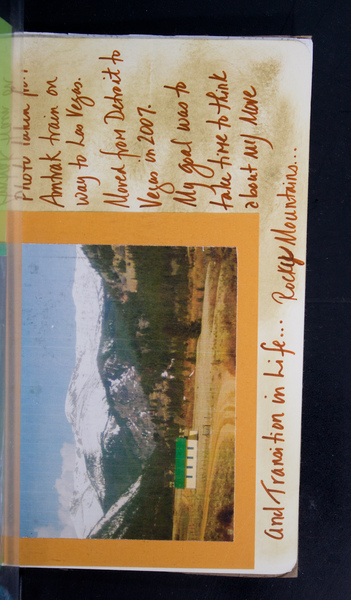 Photo taken
Amtrak train on
way to Las Vegas.
Moved from Detroit to
Vegas in 2007.
My goal was to
take time to think
about my Move
and Transition in Life... Rocky Mountains...